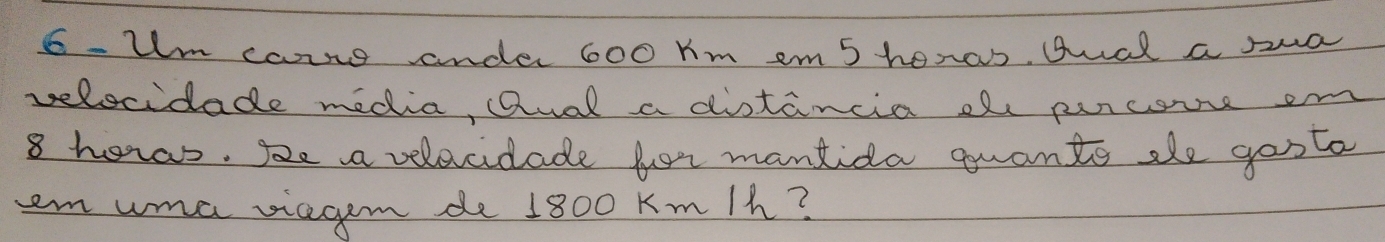 6 - Um carro anda 600 Km em 5 horas. Qual a sua
velocidade média, Qual a distância ele percorre em
8 horas. Se a velocidade for mantida quanto ele gasta
em uma viagem de 1800 Km/h?